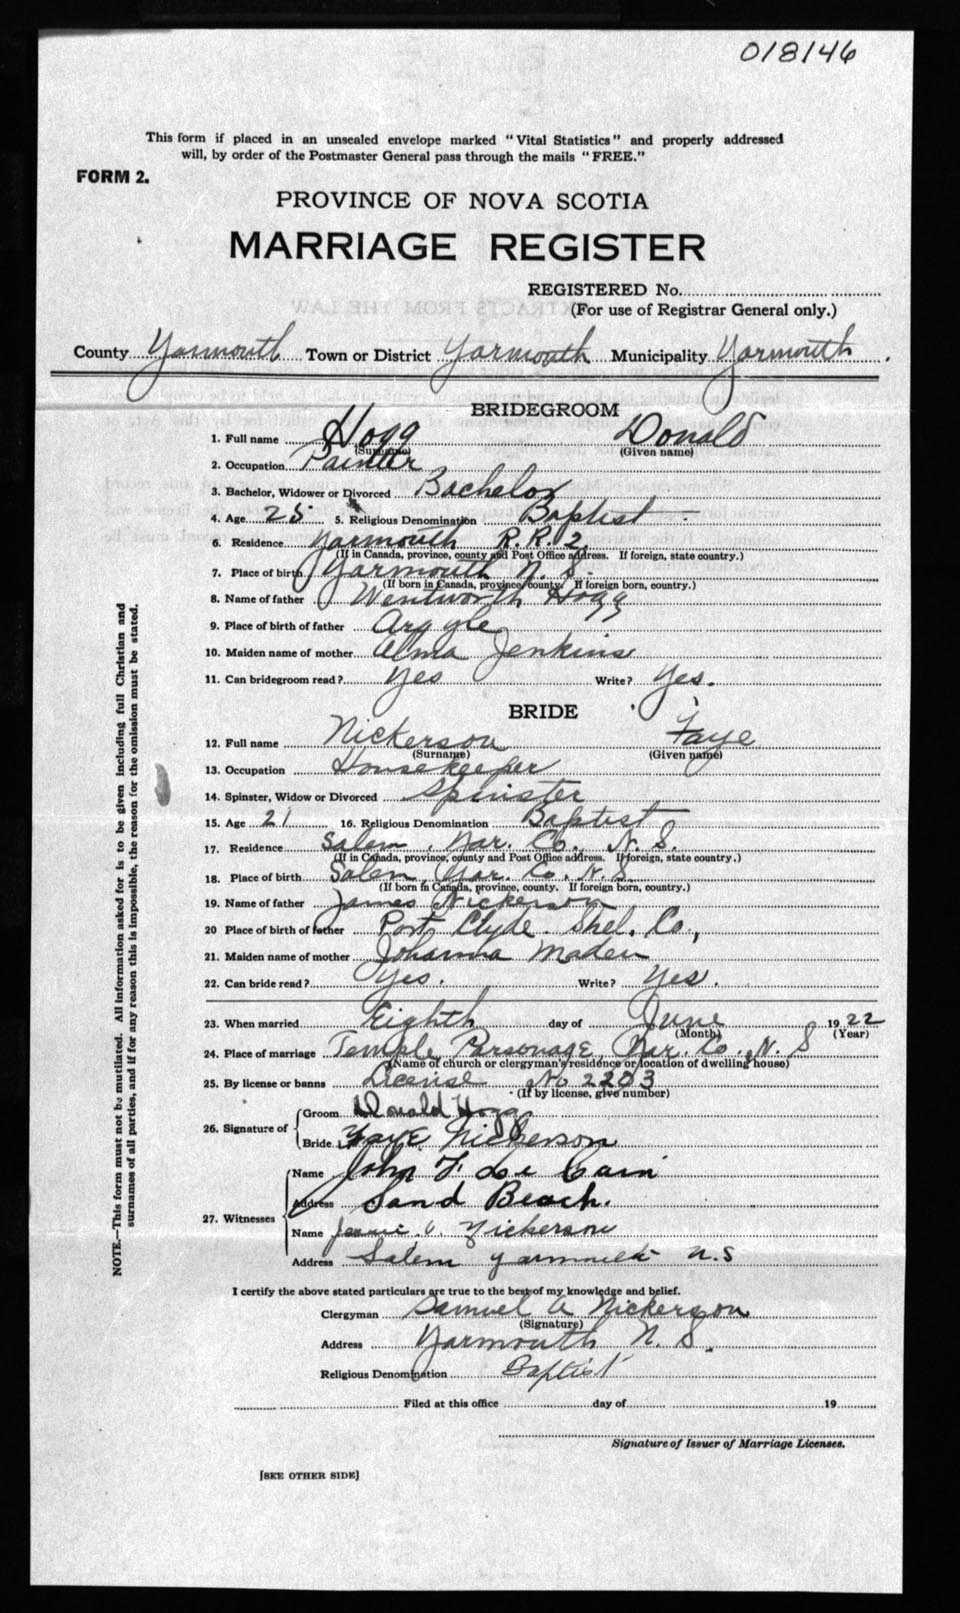 018146
This form if placed in an unsealed envelope marked "Vital Statistics" and properly addressed
will, by order of the Postmaster General pass through the mails "FREE."
FORM 2.
PROVINCE OF NOVA SCOTIA
MARRIAGE REGISTER
REGISTERED No.
(For use of Registrar General only.)
County Yarmouth Town or District Yarmouth Municipality Yarmouth
BRIDEGROOM
1. Full name Hogg Donald
(Surname) (Given name)
2. Occupation Painter
3. Bachelor, Widower or Divorced Bachelor
4. Age 25 5. Religious Denomination Baptist
6. Residence Yarmouth R.R. 2
(If in Canada, province, county and Post Office address. If foreign, state country.)
7. Place of birth Yarmouth N. S.
(If born in Canada, province, county. If foreign born, country.)
8. Name of father Wentworth Hogg
9. Place of birth of father Argyle
10. Maiden name of mother Alma Jenkins
11. Can bridegroom read? Yes Write? Yes.
BRIDE
12. Full name Nickerson Faye
(Surname) (Given name)
13. Occupation Housekeeper
14. Spinster, Widow or Divorced Spinster
15. Age 21 16. Religious Denomination Baptist
17. Residence Salem, Yar. Co. N. S.
(If in Canada, province, county and Post Office address. If foreign, state country.)
18. Place of birth Salem, Yar. Co. N. S.
(If born in Canada, province, county. If foreign born, country.)
19. Name of father James Nickerson
20 Place of birth of father Port Clyde. Shel. Co,
21. Maiden name of mother Johanna Maden
22. Can bride read? Yes. Write? Yes.
23. When married Eighth day of June 1922
(Month) (Year)
24. Place of marriage Temple Parsonage, Yar. Co., N. S
(Name of church or clergyman's residence or location of dwelling house)
25. By license or banns License No 2203
(If by license, give number)
26. Signature of Groom Donald Hogg
Bride Faye Nickerson
27. Witnesses Name John F Le Cain
Address Sand Beach.
Name V. Nickerson
Address Salem Yarmouth N.S
I certify the above stated particulars are true to the best of my knowledge and belief.
Clergyman Samuel A Nickerson
(Signature)
Address Yarmouth N. S.
Religious Denomination Baptist
Filed at this office day of 19
Signature of Issuer of Marriage Licenses.
[SEE OTHER SIDE]
NOTE.—This form must not be mutilated. All information asked for is to be given including full Christian and
surnames of all parties, and if for any reason this is impossible, the reason for the omission must be stated.